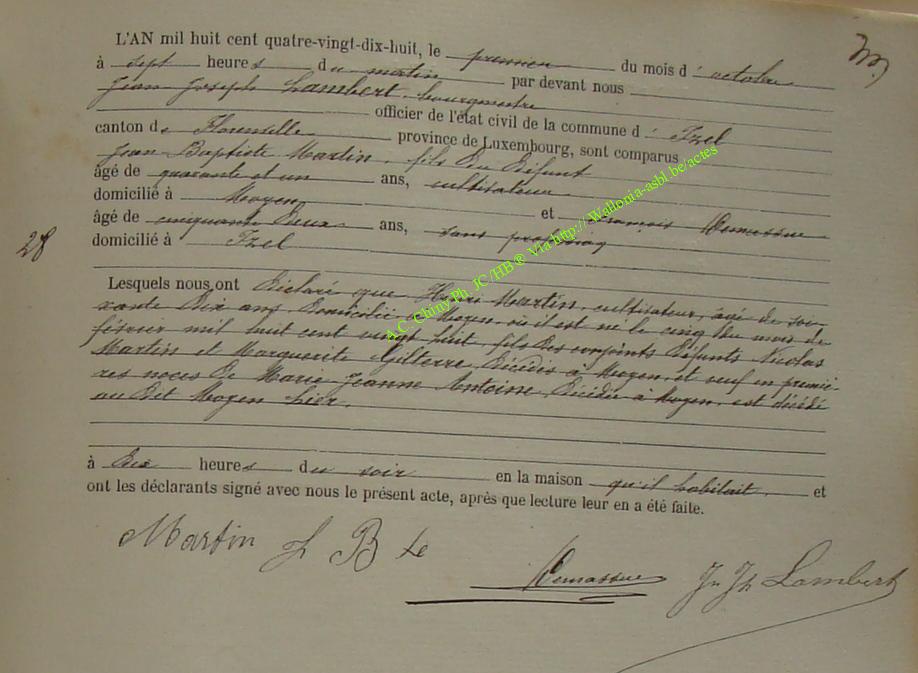 L'AN mil huit cent quatre-vingt-dix-huit, le premier du mois d' octobre
à sept heures du matin par devant nous
Jean Joseph Lambert, bourgmestre
officier de l'état civil de la commune d' Izel
canton de Florenville province de Luxembourg, sont comparus
Jean Baptiste Martin, fils du Défunt
âgé de quarante et un ans, cultivateur
domicilié à Moyen et François
âgé de cinquante deux ans, sans profession
domicilié à Izel
28
Lesquels nous ont Déclaré que Henri Martin, cultivateur, âgé de soi-
xante Dix ans, Domicilié à Moyen, où il est né le cinq du mois de
février mil huit cent vingt huit, fils des conjoints Défunts Nicolas
Martin et Marguerite Gilterre, Décédés à Moyen, et veuf en premiè-
res noces de Marie Jeanne Antoine, Décédée à Moyen, est décédé
au Dit Moyen hier.
à heures du soir en la maison qu'il habitait. et
ont les déclarants signé avec nous le présent acte, après que lecture leur en a été faite.
Martin J B te
Jn Jh Lambert
A.C. Chiny Ph. JC /HB ® Via http://Wallonia-asbl.be/actes